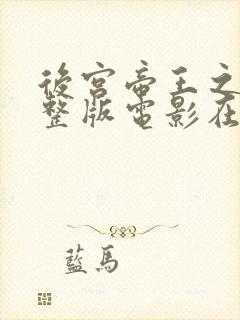 後宮帝王之
整版電影在
藍馬